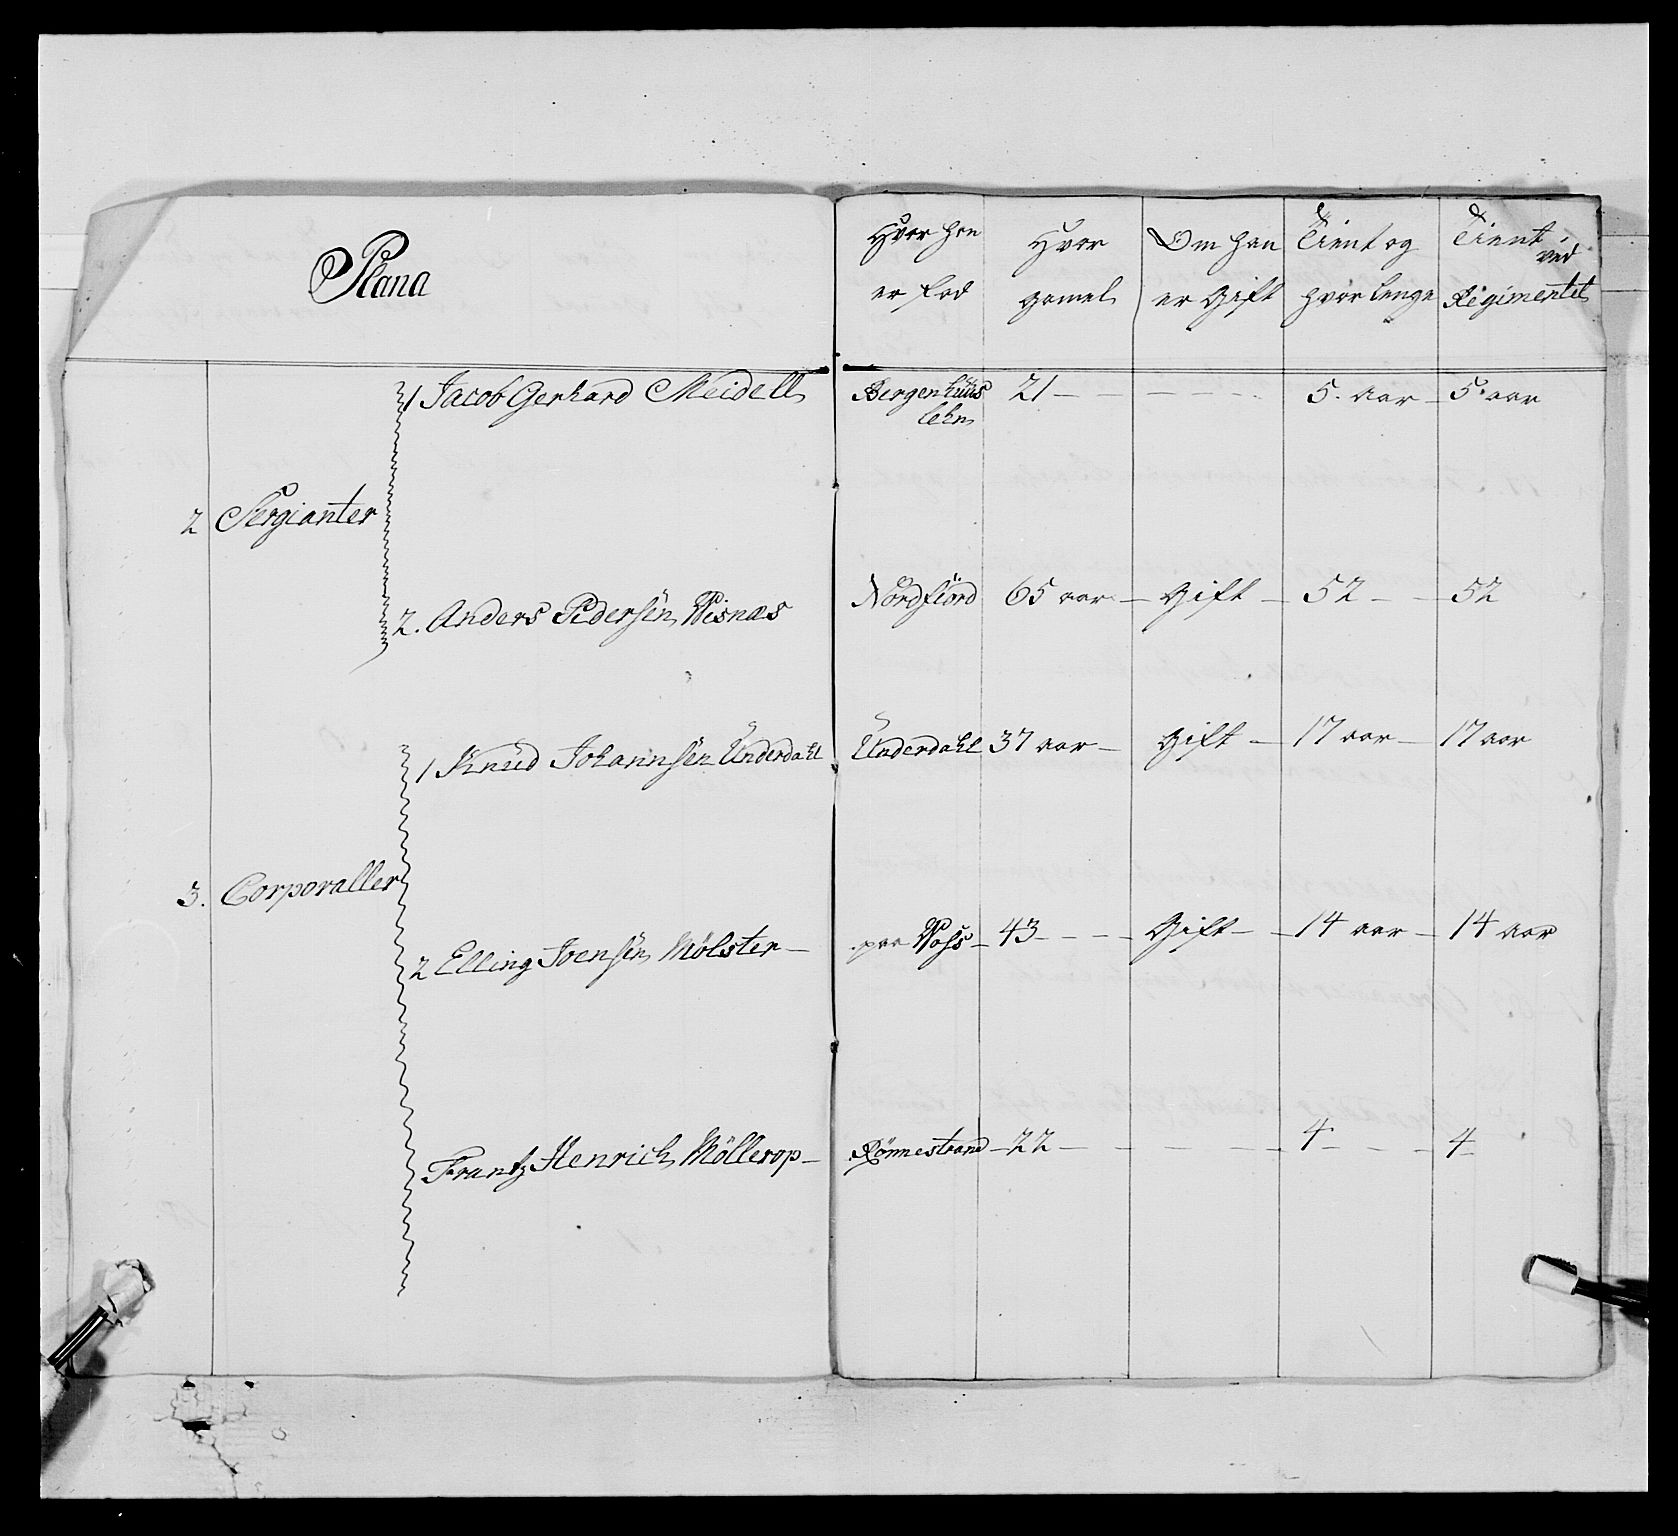 Plana
Hvor han er Fød
Hvor gamel
Om han er Gift
Tient og hvor lenge
Tient ved Regimentet
2 Sergianter
1 Jacob Gerhard Meidell Bergenhuus lehn 21 - - - - - 5. aar - 5. aar
2. Anders Pedersen Wisnæs Nordfiord 65 aar - Gift - 52 - - 52
3. Corporaller
1 Knud Johannsen Underdahl Underdahl 37 aar - Gift - 17 aar - 17 aar
2 Elling Joensen Mølster - paa Woss - 43 - - - Gift - 14 aar - 14 aar
Frantz Henrich Möllerop - Rönnestrand - 22 - - - - - 4 - - - 4